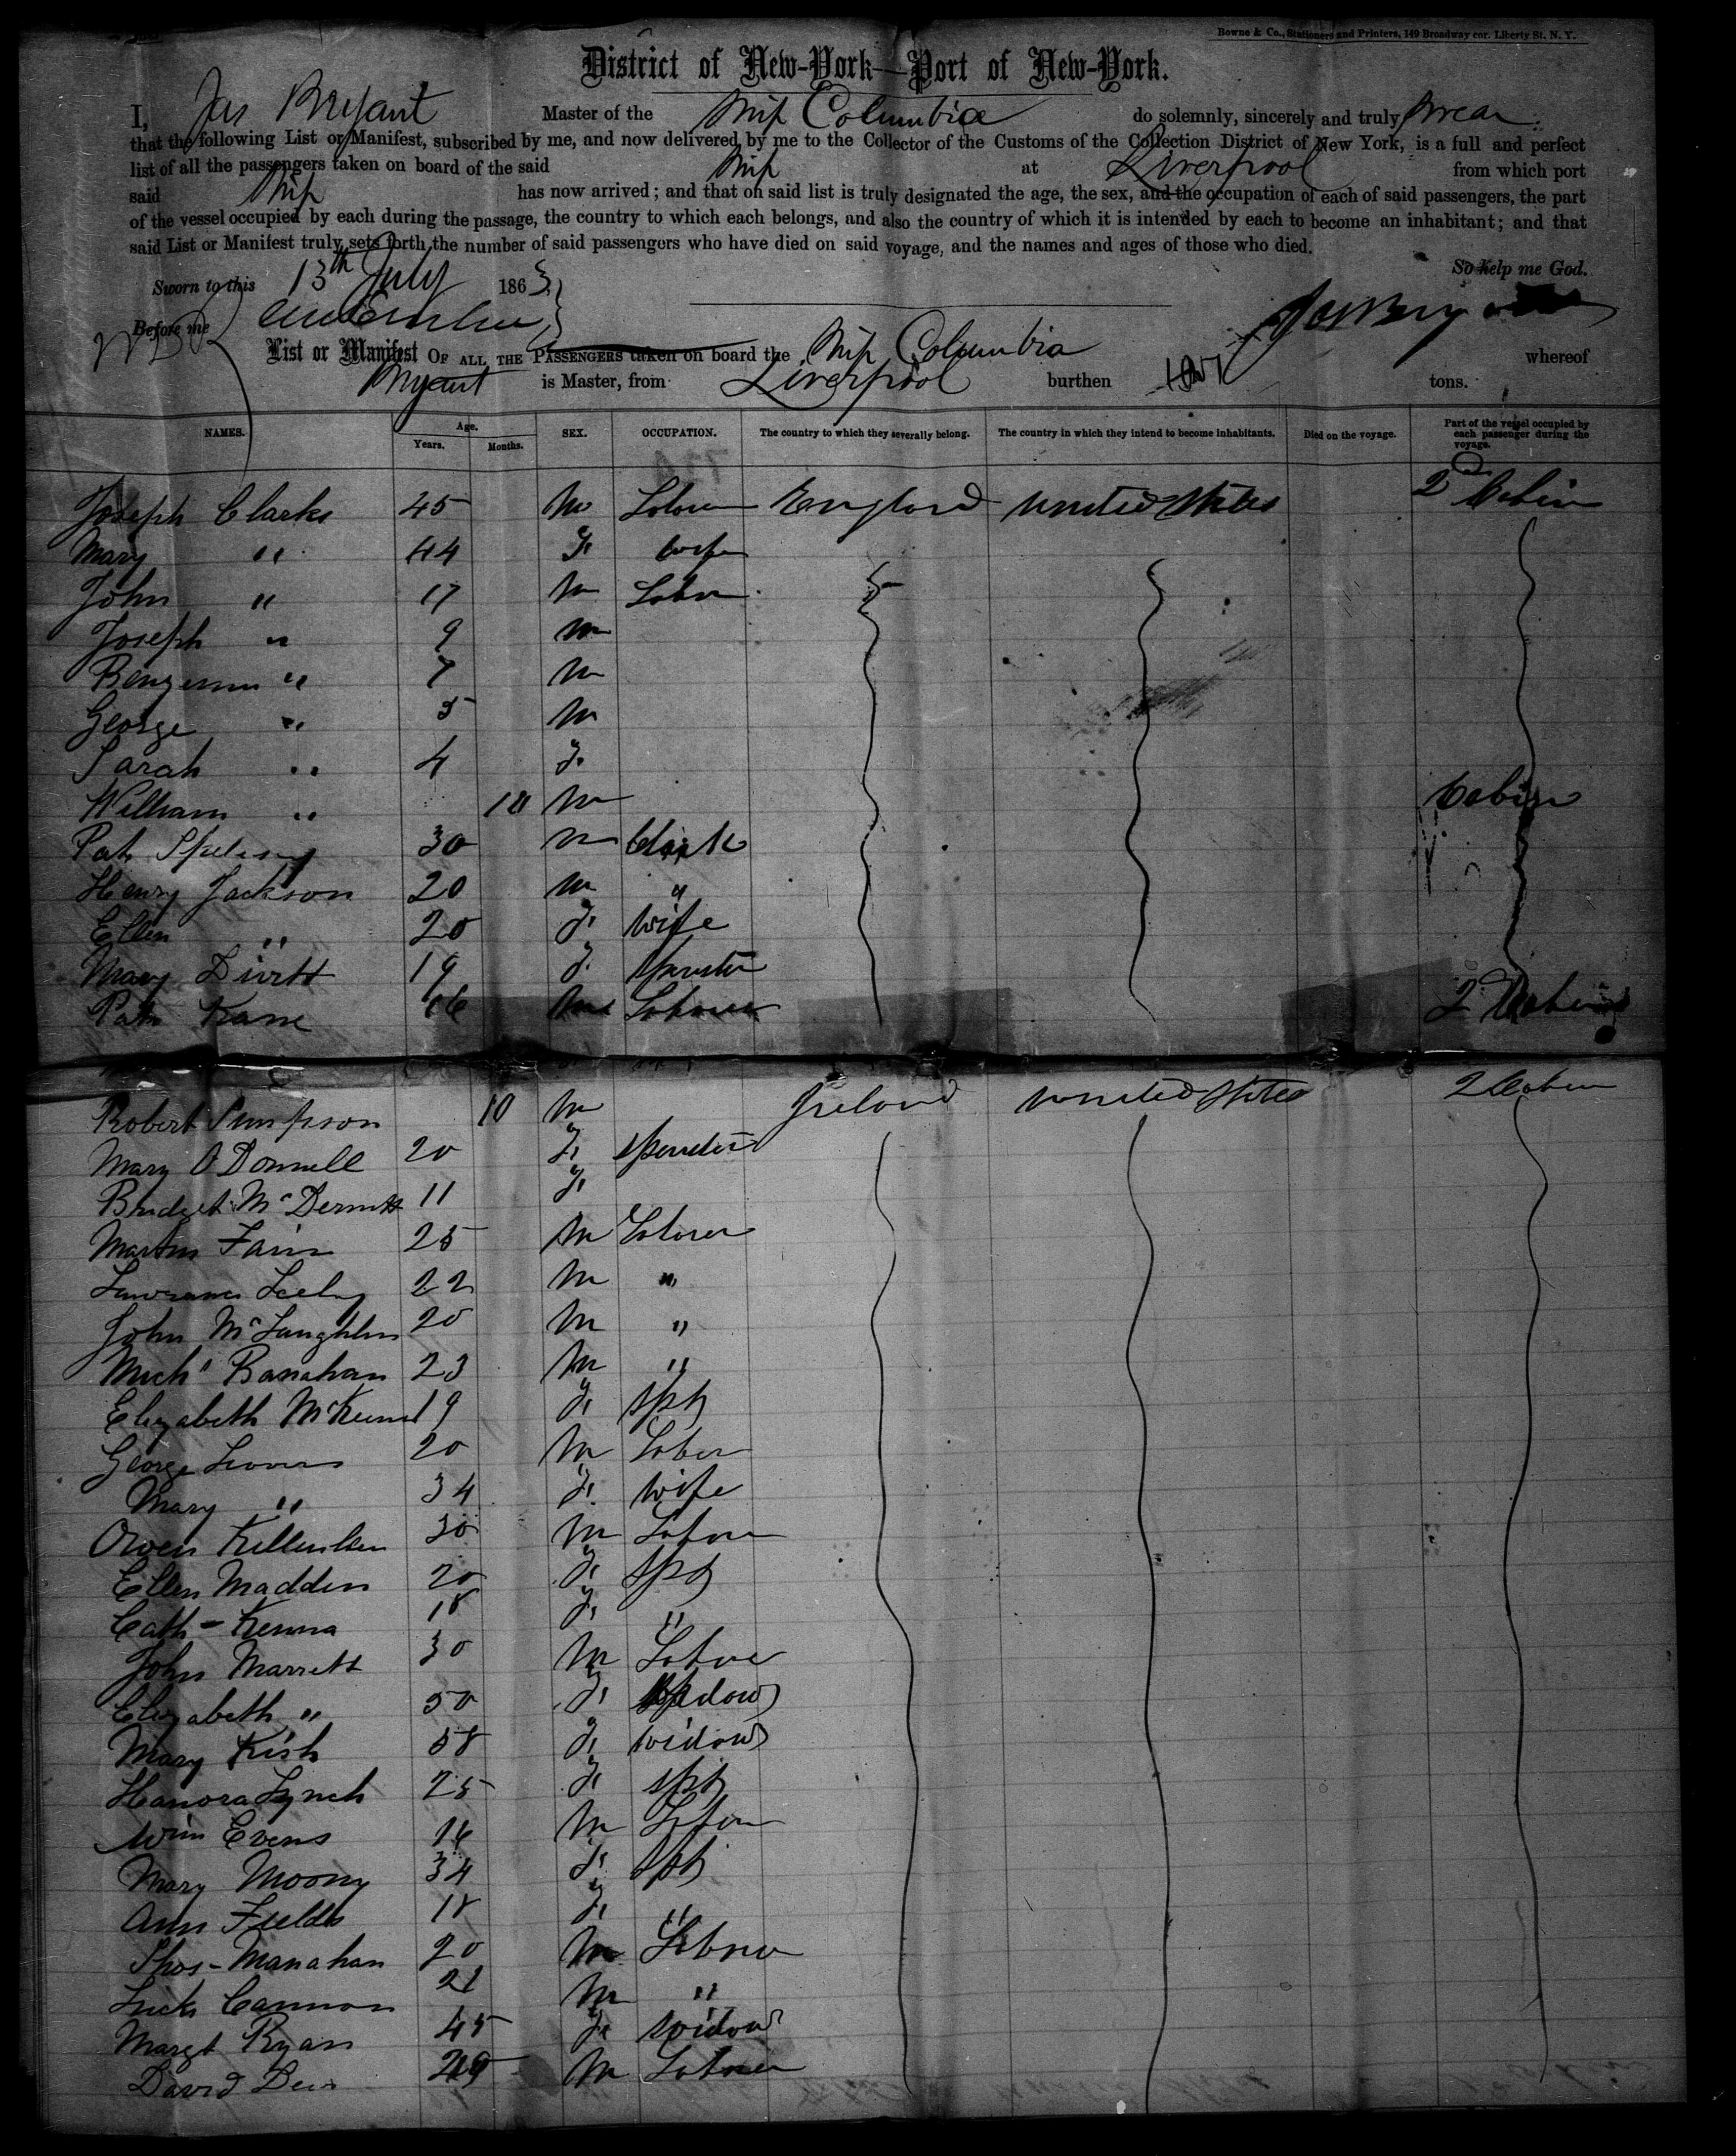 Bowne & Co., Stationers and Printers, 149 Broadway cor. Liberty St. N. Y.
District of New-York—Port of New-York.
I, Jas Bryant Master of the Ship Columbia do solemnly, sincerely and truly swear
that the following List or Manifest, subscribed by me, and now delivered by me to the Collector of the Customs of the Collection District of New York, is a full and perfect
list of all the passengers taken on board of the said Ship at Liverpool from which port
said Ship has now arrived; and that on said list is truly designated the age, the sex, and the occupation of each of said passengers, the part
of the vessel occupied by each during the passage, the country to which each belongs, and also the country of which it is intended by each to become an inhabitant; and that
said List or Manifest truly sets forth the number of said passengers who have died on said voyage, and the names and ages of those who died.
So help me God.
Sworn to this 13th July 1863
Before me
List or Manifest OF ALL THE PASSENGERS taken on board the Ship Columbia whereof
Bryant is Master, from Liverpool burthen tons.
NAMES. Age. Years. Months. SEX. OCCUPATION. The country to which they severally belong. The country in which they intend to become inhabitants. Died on the voyage. Part of the vessel occupied by each passenger during the voyage.
Joseph Clarke 45 M Laborer England United States 2d Cabin
Mary " 44 F wife
John " 17 M Labor
Joseph " 9 M
Benjamin " 7 M
George " 5 M
Sarah " 4 F
William " 10 M Cabin
Pat 30 M Clerk
Henry Jackson 20 M "
Ellen " 20 F wife
Mary 19 F spinster
Pat Kane 16 M Laborer 2 Cabin
Robert Simpson 10 M Ireland United States 2 Cabin
Mary O Donnell 20 F spinster
Bridget McDermott 11 F
Martin 25 M Laborer
Lawrence 22 M "
John McLaughlin 20 M "
Mich" Banahan 23 M "
Elizabeth 19 F spr
George 20 M Labor
Mary " 34 F wife
Owen 30 M Labor
Ellen Madden 20 F spr
Cath - Kenna 18 F "
John Marrett 30 M Labor
Elizabeth " 50 F widow
Mary Kish 58 F widow
Hanora Lynch 25 F spr
Wm Evens 16 M Labor
Mary Moony 34 F spr
Ann Fields 18 F "
Thos - Manahan 20 M Labour
Luck Cannon 21 M "
Margt Ryan 45 F widow
David M Laborer